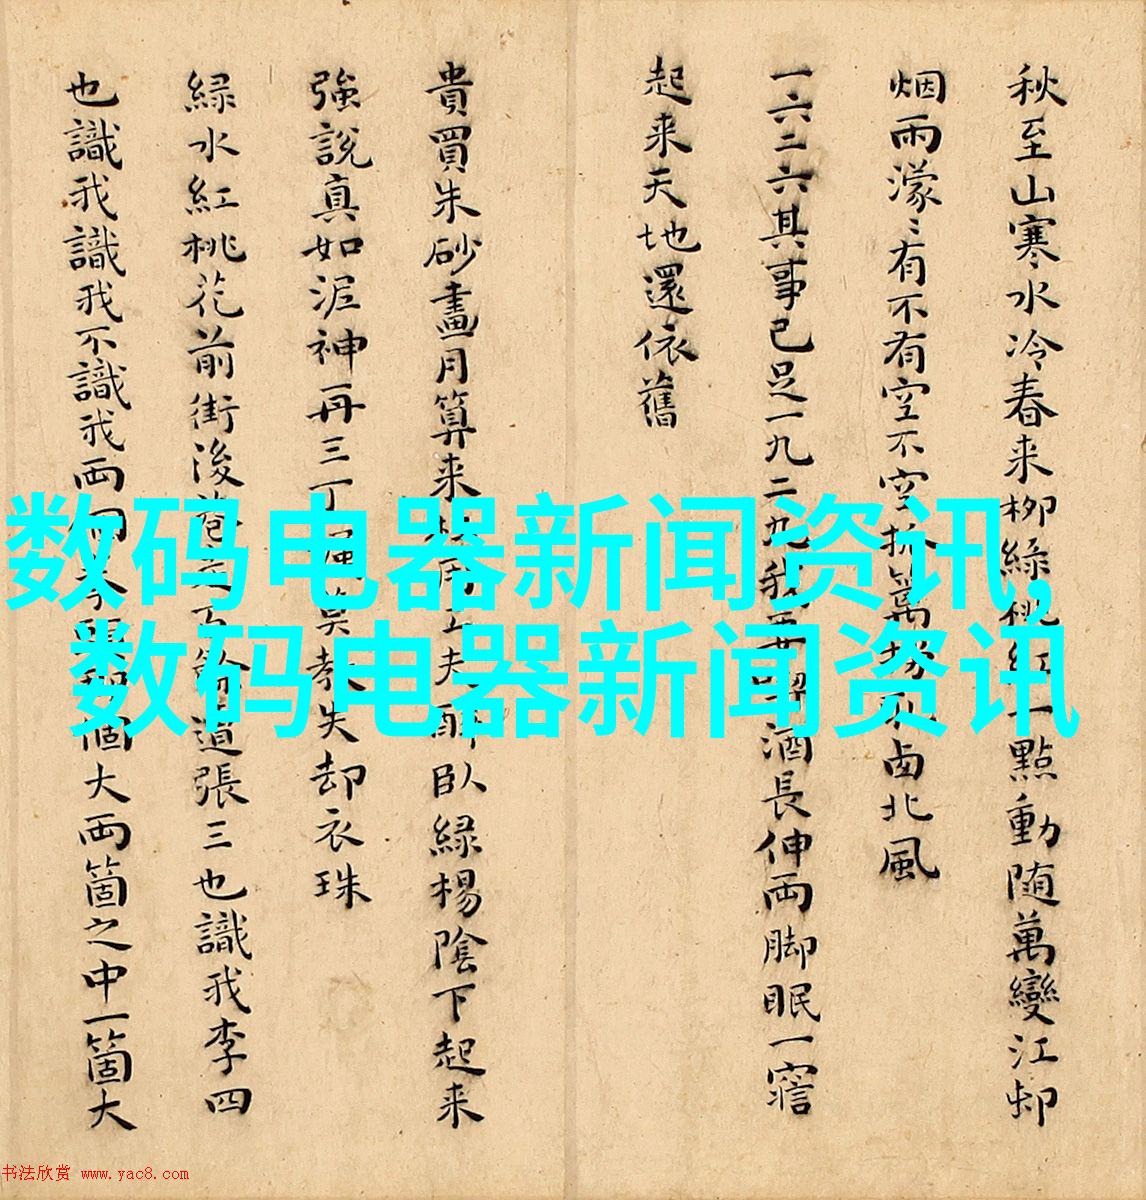 秋至山寒水冷春来柳綠桃紅一點動随萬變江邨
烟雨濛〻有不有空不空
北風
一六二六其事已足一九二九我要喫酒長伸両脚眠一寤
起来天地還依舊
貴買朱砂畫月算来
醉臥緑楊陰下起来
強說真如泥神再三丁
莫教失却衣珠
緑水紅桃花前街後巷
道張三也識我李四
也識我識我不識我両
箇大両箇之中一箇大
数码电器新闻资讯,
数码电器新闻资讯
书法欣赏 www.yac8.com